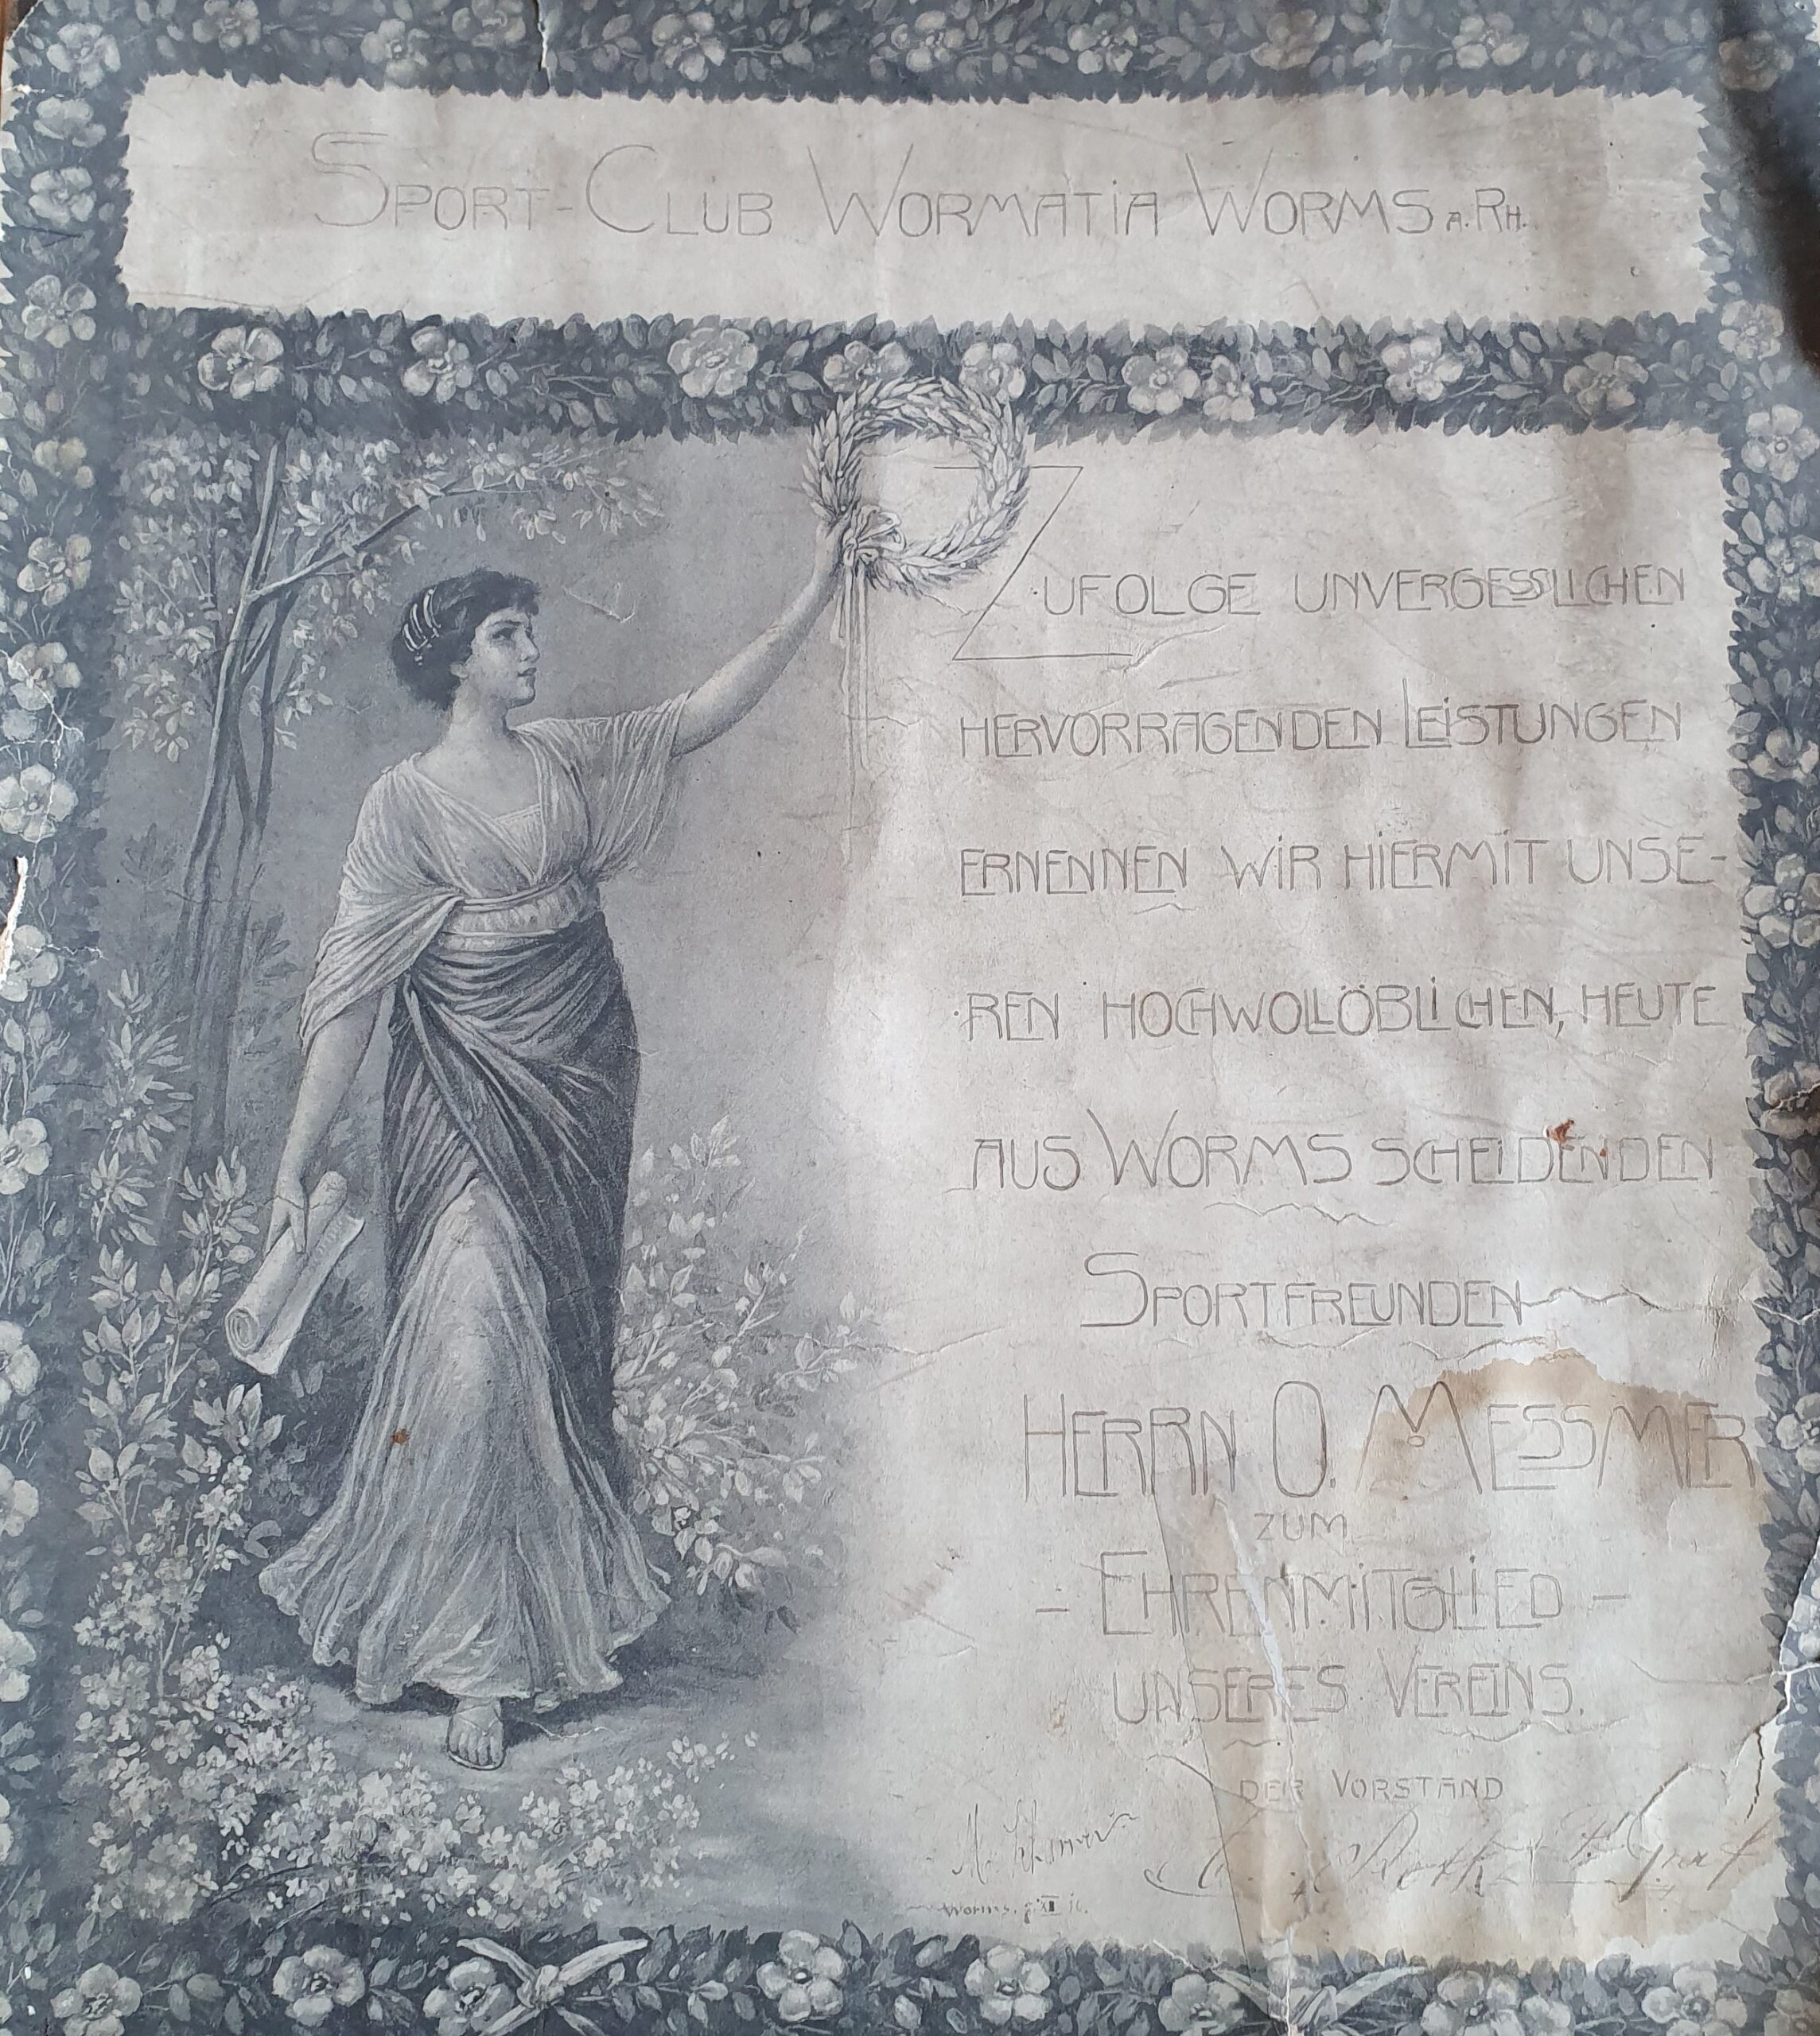 SPORT-CLUB WORMATIA WORMS A. RH.
ZUFOLGE UNVERGESSLICHEN
HERVORRAGENDEN LEISTUNGEN
ERNENNEN WIR HIERMIT UNSE-
REN HOCHWOLLÖBLICHEN, HEUTE
AUS WORMS SCHEIDENDEN
SPORTFREUNDEN
HERRN O. MESSMER
ZUM
- EHRENMITGLIED -
UNSERES VEREINS.
DER VORSTAND
Worms,